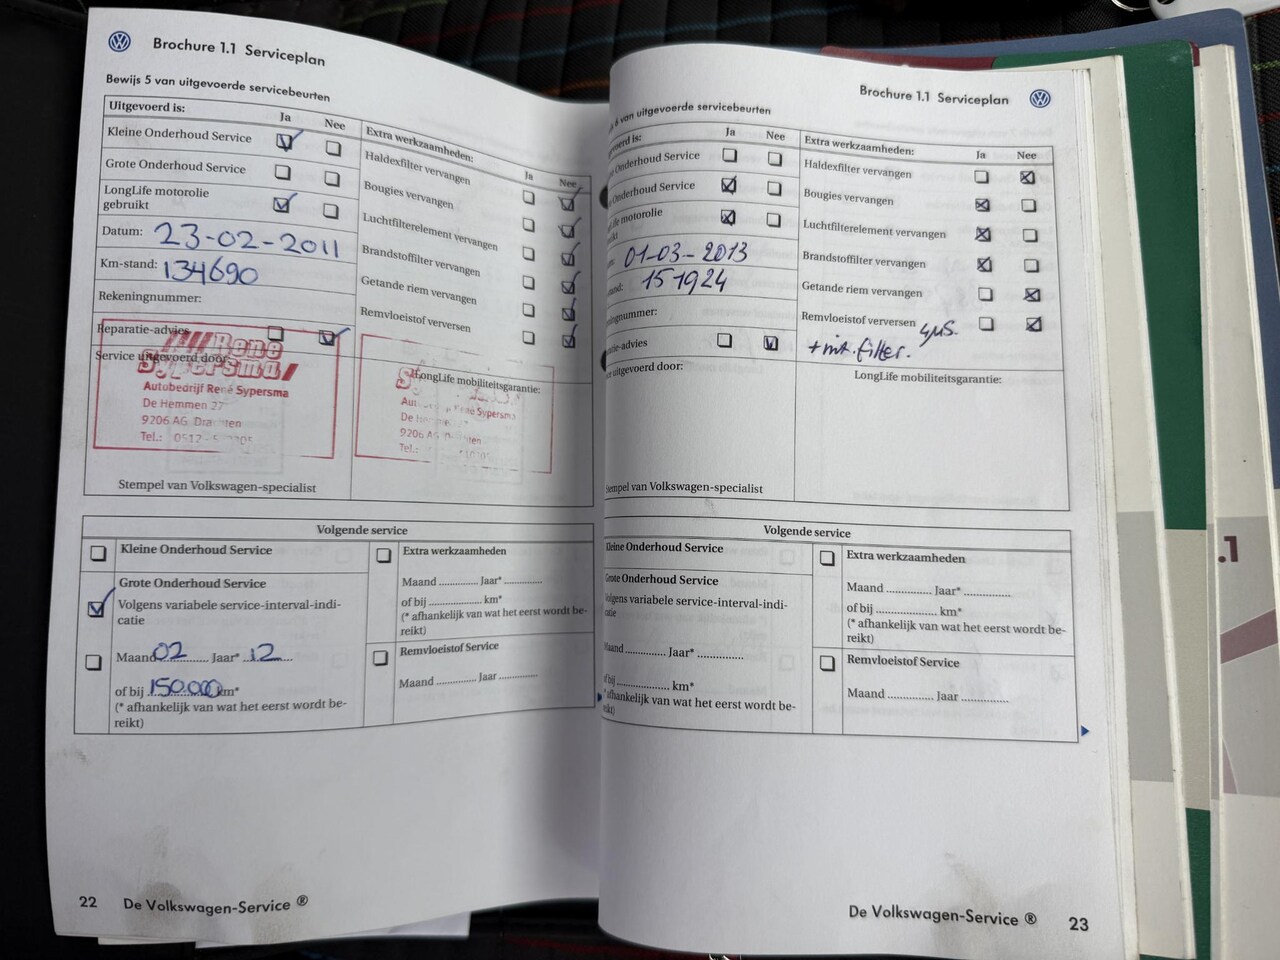 Brochure 1.1 Serviceplan
Bewijs 5 van uitgevoerde servicebeurten
Uitgevoerd is: Ja Nee
Kleine Onderhoud Service
Grote Onderhoud Service
LongLife motorolie
gebruikt
Datum: 23-02-2011
Km-stand: 134690
Rekeningnummer:
Reparatie-advies
Service uitgevoerd door:
René
Sypersma
Autobedrijf René Sypersma
De Hemmen 27
9206 AG
Tel.: 0512 -
Stempel van Volkswagen-specialist
Extra werkzaamheden: Ja Nee
Haldexfilter vervangen
Bougies vervangen
Luchtfilterelement vervangen
Brandstoffilter vervangen
Getande riem vervangen
Remvloeistof verversen
LongLife mobiliteitsgarantie:
René Sypersma
9206 AG
Tel.:
Volgende service
Kleine Onderhoud Service
Grote Onderhoud Service
Volgens variabele service-interval-indi-
catie
Maand 02 Jaar* 12
of bij 150.000 km*
(* afhankelijk van wat het eerst wordt be-
reikt)
Extra werkzaamheden
Maand .............. Jaar* ..............
of bij .................... km*
(* afhankelijk van wat het eerst wordt be-
reikt)
Remvloeistof Service
Maand .............. Jaar ..............
22 De Volkswagen-Service ®
Brochure 1.1 Serviceplan
6 van uitgevoerde servicebeurten
is: Ja Nee
Onderhoud Service
Onderhoud Service
motorolie
01-03-2013
151924
nummer:
-advies
uitgevoerd door:
Stempel van Volkswagen-specialist
Extra werkzaamheden: Ja Nee
Haldexfilter vervangen
Bougies vervangen
Luchtfilterelement vervangen
Brandstoffilter vervangen
Getande riem vervangen
Remvloeistof verversen
+ int. filter.
LongLife mobiliteitsgarantie:
Volgende service
Kleine Onderhoud Service
Grote Onderhoud Service
Volgens variabele service-interval-indi-
catie
Maand .............. Jaar* ..............
of bij .................... km*
(* afhankelijk van wat het eerst wordt be-
reikt)
Extra werkzaamheden
Maand .............. Jaar* ..............
of bij .................... km*
(* afhankelijk van wat het eerst wordt be-
reikt)
Remvloeistof Service
Maand .............. Jaar ..............
De Volkswagen-Service ® 23
.1